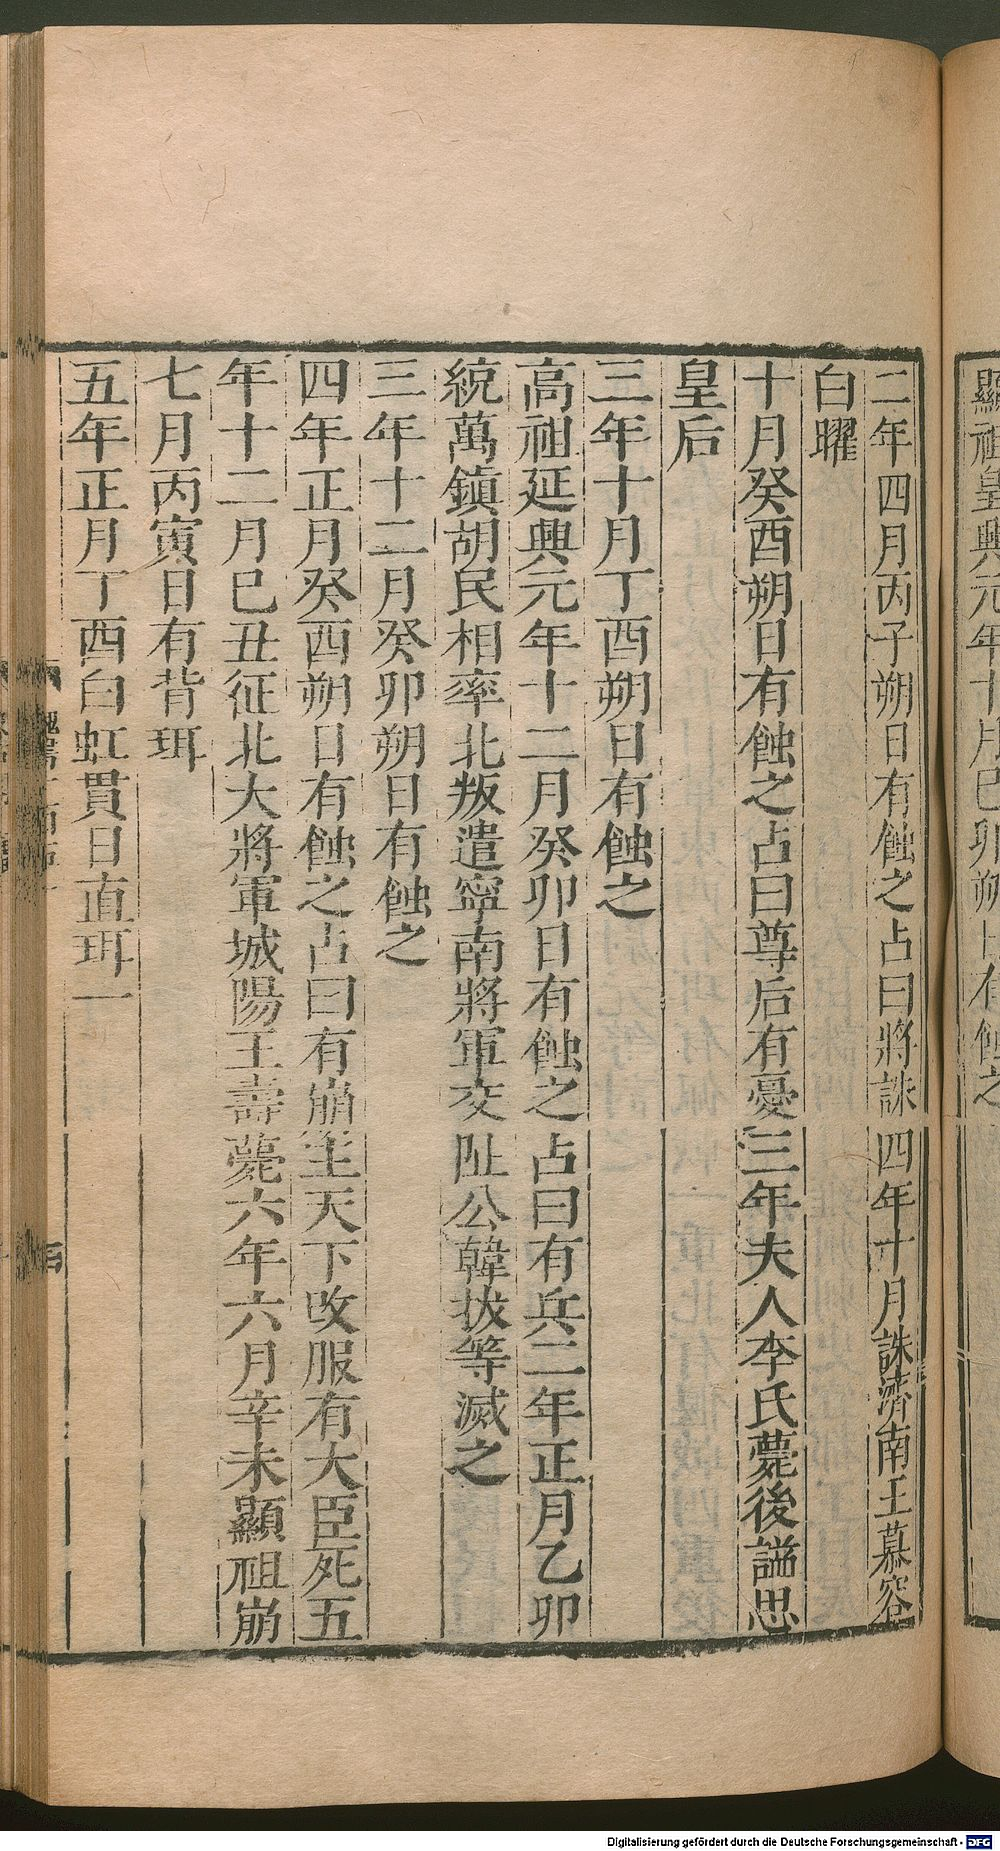 顯祖皇興元年十月巳卯朔日有蝕之
二年四月丙子朔日有蝕之占曰將誅四年十月誅濟南王慕容
白曜
十月癸酉朔日有蝕之占曰尊后有憂三年夫人李氏薨後謚思
皇后
三年十月丁酉朔日有蝕之
高祖延興元年十二月癸卯日有蝕之占曰有兵二年正月乙卯
統萬鎮胡民相率北叛遣寧南將軍交阯公韓拔等滅之
三年十二月癸卯朔日有蝕之
四年正月癸酉朔日有蝕之占曰有崩主天下改服有大臣死五
年十二月巳丑征北大將軍城陽王壽薨六年六月辛未顯祖崩
七月丙寅日有背珥
五年正月丁酉白虹貫日直珥一
Digitalisierung gefördert durch die Deutsche Forschungsgemeinschaft - DFG